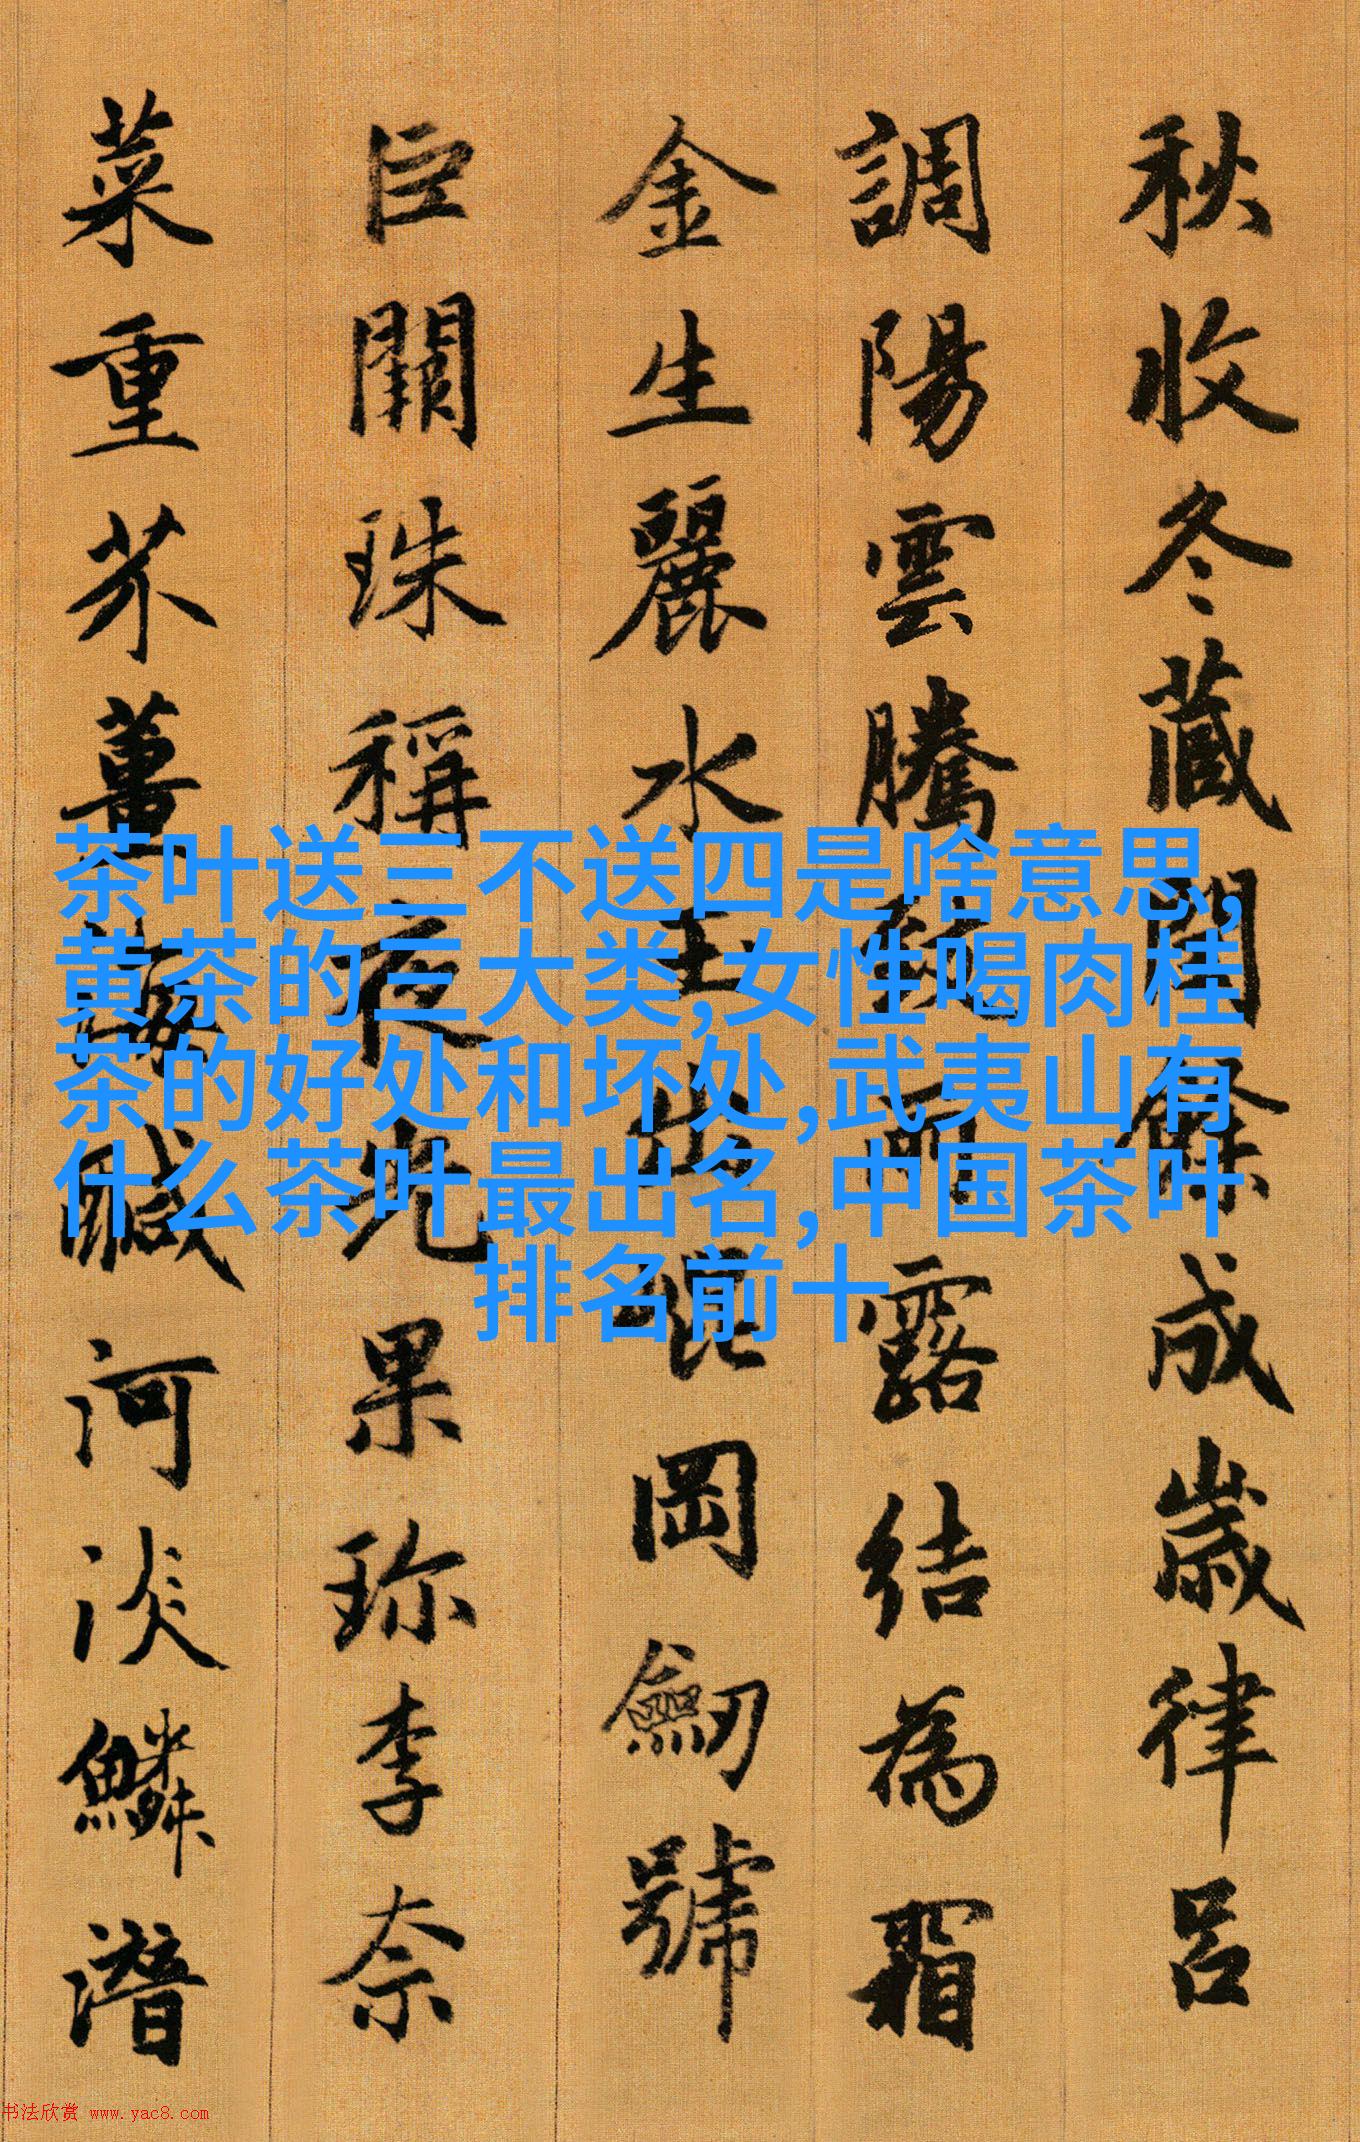 秋收冬藏閏餘成歲律呂
調陽雲騰致雨露結為霜
金生麗水玉出崑岡劒號
巨闕珠稱夜光果珍李奈
菜重芥薑海鹹河淡鱗潛
茶叶送三不送四是啥意思,
黄茶的三大类,女性喝肉桂
茶的好处和坏处,武夷山有
什么茶叶最出名,中国茶叶
排名前十
书法欣赏 www.yac8.com